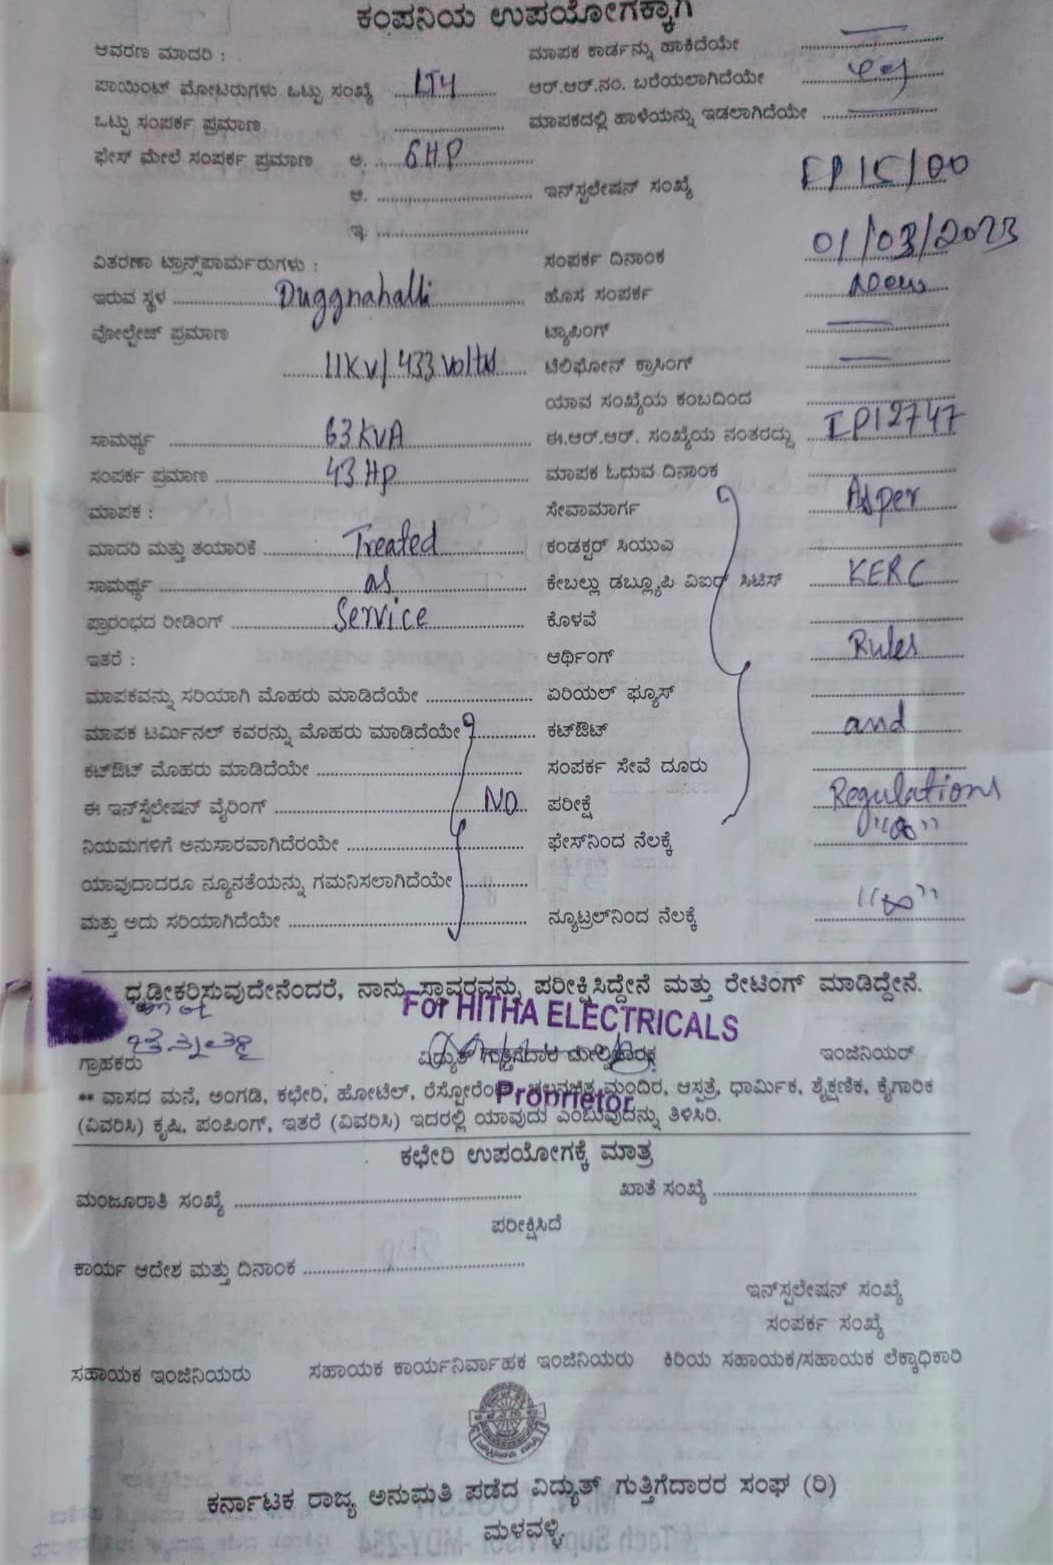 ಕಂಪನಿಯ ಉಪಯೋಗಕ್ಕಾಗಿ
ಆವರಣ ಮಾದರಿ : ಮಾಪಕ ಕಾರ್ಡನ್ನು ಹಾಕಿದೆಯೇ
ಪಾಯಿಂಟ್ ಮೋಟರುಗಳು ಒಟ್ಟು ಸಂಖ್ಯೆ LT4 ಆರ್.ಆರ್.ನಂ. ಬರೆಯಲಾಗಿದೆಯೇ
ಒಟ್ಟು ಸಂಪರ್ಕ ಪ್ರಮಾಣ ಮಾಪಕದಲ್ಲಿ ಹಾಳೆಯನ್ನು ಇಡಲಾಗಿದೆಯೇ
ಫೇಸ್ ಮೇಲೆ ಸಂಪರ್ಕ ಪ್ರಮಾಣ ಅ. 6HP
ಆ. ಇನ್‌ಸ್ಟಲೇಷನ್ ಸಂಖ್ಯೆ
ಇ.
ವಿತರಣಾ ಟ್ರಾನ್ಸ್‌ಪಾರ್ಮರುಗಳು : ಸಂಪರ್ಕ ದಿನಾಂಕ 01/03/2023
ಇರುವ ಸ್ಥಳ Duggnahalli ಹೊಸ ಸಂಪರ್ಕ New
ವೋಲ್ಟೇಜ್ ಪ್ರಮಾಣ ಟ್ಯಾಪಿಂಗ್
11KV/433 Volts ಟೆಲಿಫೋನ್ ಕ್ರಾಸಿಂಗ್
ಯಾವ ಸಂಖ್ಯೆಯ ಕಂಬದಿಂದ
ಸಾಮರ್ಥ್ಯ 63KVA ಈ.ಆರ್.ಆರ್. ಸಂಖ್ಯೆಯ ನಂತರದ್ದು IP12747
ಸಂಪರ್ಕ ಪ್ರಮಾಣ 43Hp ಮಾಪಕ ಓದುವ ದಿನಾಂಕ
ಮಾಪಕ : ಸೇವಾಮಾರ್ಗ Asper
ಮಾದರಿ ಮತ್ತು ತಯಾರಿಕೆ Treated ಕಂಡಕ್ಟರ್ ಸಿಯುಎ
ಸಾಮರ್ಥ್ಯ as ಕೇಬಲ್ಲು ಡಬ್ಲ್ಯೂಪಿ ವಿಐರ್ ಸಿಟಿಸ್ KERC
ಪ್ರಾರಂಭದ ರೀಡಿಂಗ್ Service ಕೊಳವೆ
ಇತರೆ : ಆರ್ಥಿಂಗ್ Rules
ಮಾಪಕವನ್ನು ಸರಿಯಾಗಿ ಮೊಹರು ಮಾಡಿದೆಯೇ ಏರಿಯಲ್ ಫ್ಯೂಸ್
ಮಾಪಕ ಟರ್ಮಿನಲ್ ಕವರನ್ನು ಮೊಹರು ಮಾಡಿದೆಯೇ ಕಟ್‌ಔಟ್ and
ಕಟ್‌ಔಟ್ ಮೊಹರು ಮಾಡಿದೆಯೇ ಸಂಪರ್ಕ ಸೇವೆ ದೂರು
ಈ ಇನ್‌ಸ್ಟಲೇಷನ್ ವೈರಿಂಗ್ NO ಪರೀಕ್ಷೆ Regulations
ನಿಯಮಗಳಿಗೆ ಅನುಸಾರವಾಗಿದೆರಯೇ ಫೇಸ್‌ನಿಂದ ನೆಲಕ್ಕೆ "∞"
ಯಾವುದಾದರೂ ನ್ಯೂನತೆಯನ್ನು ಗಮನಿಸಲಾಗಿದೆಯೇ
ಮತ್ತು ಅದು ಸರಿಯಾಗಿದೆಯೇ ನ್ಯೂಟ್ರಲ್‌ನಿಂದ ನೆಲಕ್ಕೆ "∞"
ಧೃಡೀಕರಿಸುವುದೇನೆಂದರೆ, ನಾನು ಸ್ಥಾವರವನ್ನು ಪರೀಕ್ಷಿಸಿದ್ದೇನೆ ಮತ್ತು ರೇಟಿಂಗ್ ಮಾಡಿದ್ದೇನೆ.
For HITHA ELECTRICALS
ಗ್ರಾಹಕರು ವಿದ್ಯುತ್ ಗುತ್ತಿಗೆದಾರ ಇಂಜಿನಿಯರ್
Proprietor
** ವಾಸದ ಮನೆ, ಅಂಗಡಿ, ಕಛೇರಿ, ಹೋಟೆಲ್, ರೆಸ್ಟೋರೆಂಟ್ ಚಲನಚಿತ್ರ ಮಂದಿರ, ಆಸ್ಪತ್ರೆ, ಧಾರ್ಮಿಕ, ಶೈಕ್ಷಣಿಕ, ಕೈಗಾರಿಕ
(ವಿವರಿಸಿ) ಕೃಷಿ, ಪಂಪಿಂಗ್, ಇತರೆ (ವಿವರಿಸಿ) ಇದರಲ್ಲಿ ಯಾವುದು ಎಂಬುವುದನ್ನು ತಿಳಿಸಿರಿ.
ಕಛೇರಿ ಉಪಯೋಗಕ್ಕೆ ಮಾತ್ರ
ಮಂಜೂರಾತಿ ಸಂಖ್ಯೆ ಖಾತೆ ಸಂಖ್ಯೆ
ಪರೀಕ್ಷಿಸಿದೆ
ಕಾರ್ಯ ಆದೇಶ ಮತ್ತು ದಿನಾಂಕ
ಇನ್‌ಸ್ಟಲೇಷನ್ ಸಂಖ್ಯೆ
ಸಂಪರ್ಕ ಸಂಖ್ಯೆ
ಸಹಾಯಕ ಇಂಜಿನಿಯರು ಸಹಾಯಕ ಕಾರ್ಯನಿರ್ವಾಹಕ ಇಂಜಿನಿಯರು ಕಿರಿಯ ಸಹಾಯಕ/ಸಹಾಯಕ ಲೆಕ್ಕಾಧಿಕಾರಿ
ಕರ್ನಾಟಕ ರಾಜ್ಯ ಅನುಮತಿ ಪಡೆದ ವಿದ್ಯುತ್ ಗುತ್ತಿಗೆದಾರರ ಸಂಘ (ರಿ)
ಮಳವಳ್ಳಿ